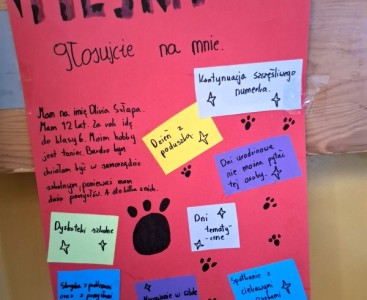 głosujcie na mnie.
Kontynuacja szczęśliwego
numerka.
Mam na imię Oliwia
Mam 12 lat. Za rok idę
do klasy 6. Moim hobby
jest taniec. Bardzo
chciałam być w samorządzie
szkolnym, ponieważ mam
dużo pomysłów.
Dzień z
poduszką.
Dni urodzinowe
nie można pytać
tej osoby.
Dyskoteki szkolne
Dni
tematy-
czne
Skrzynka z
oraz z pomysłami
w
Spotkanie z
ciekawymi
osobami